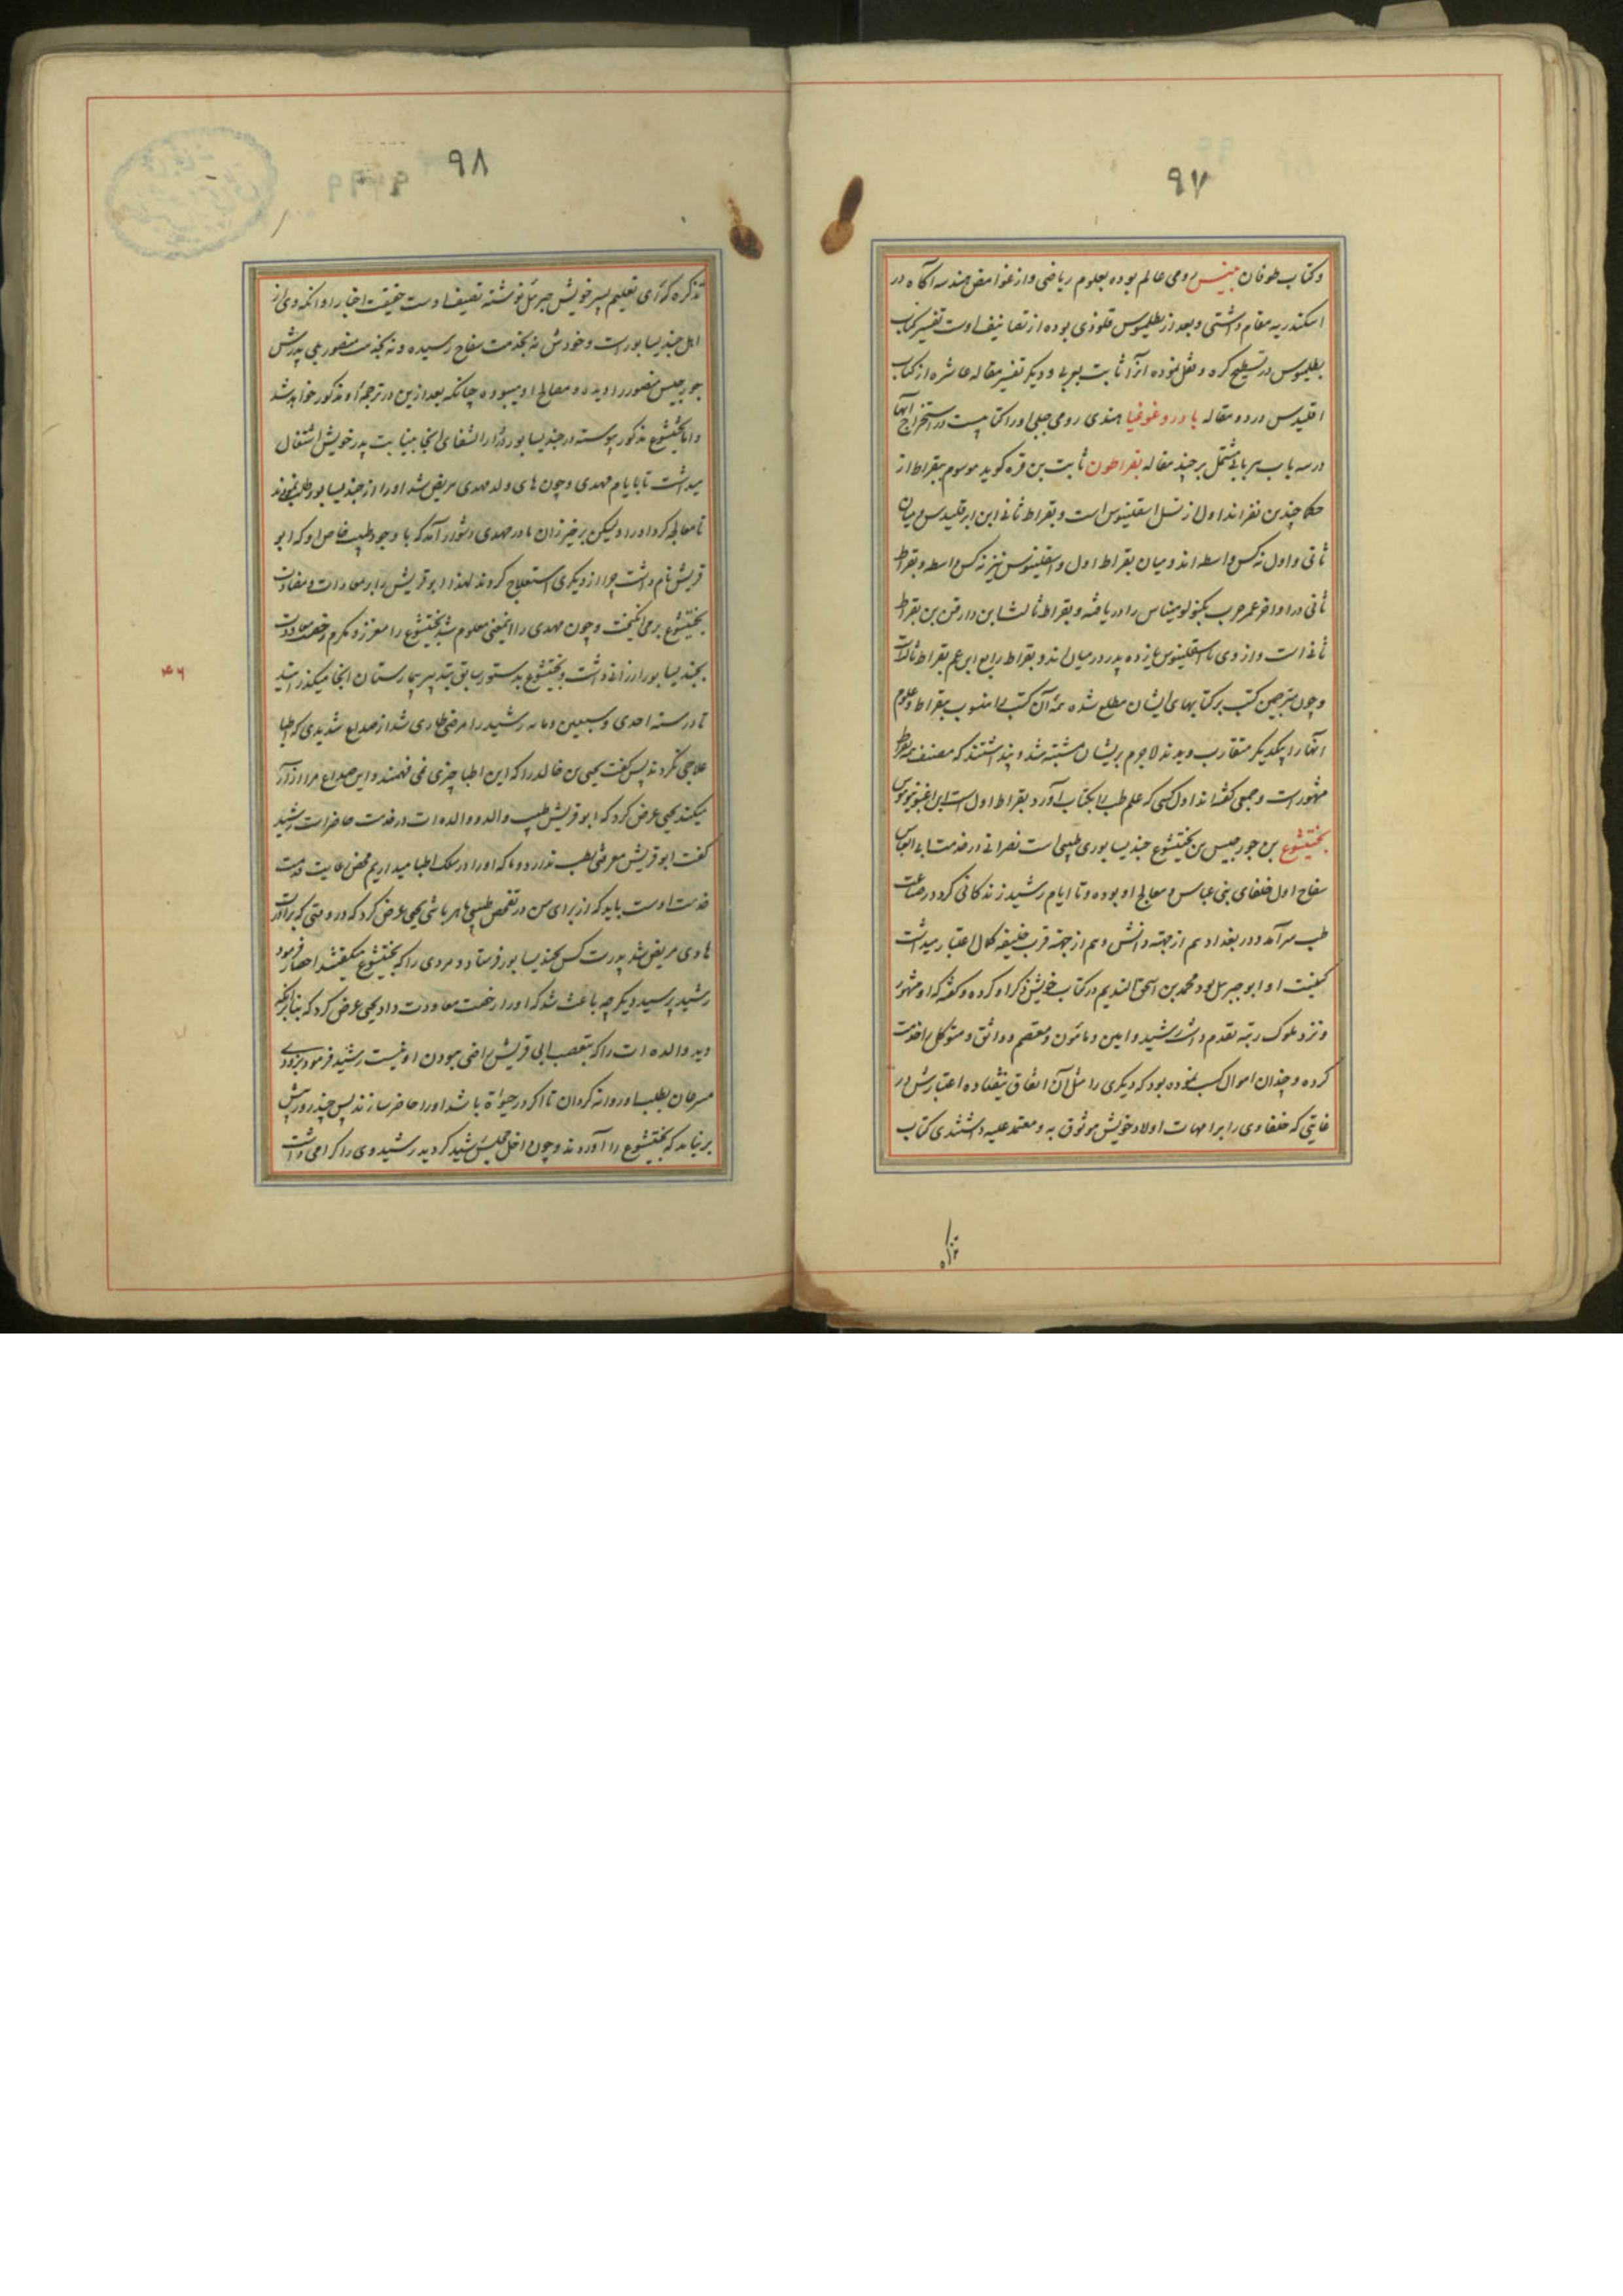 ۹۷
وکتاب طوفان بنیس رومی عالم بوده بعلوم ریاضی واز غوامض هندسه آگاه در
اسکندریه مقام داشتی و بعد از بطلیموس قلوذی بوده از تصانیف اوست تفسیر کتاب
بطلیموس در تسطیح کره و نقل نموده آنرا ثابت بعربی و دیگر تفسیر مقاله عاشره از کتاب
اقلیدس در دو مقاله بادروغوغیا هندی رومی جبلی اورا کتابیست در استخراج آبها
در سه باب هر بابی مشتمل بر چند مقاله بقراطون ثابت بن قره گوید موسوم ببقراط از
حکما چندین نفرانداول از نسل اسقلینوس است و بقراط ثانی ابن ابرقلیدس و میان
ثانی و اول نه کس واسطه اند و میان بقراط اول و اسقلینوس نیز نه کس واسطه و بقراط
ثانی در اواخر عمر حرب یکنولومیناس را دریافته و بقراط ثالث ابن دارقن بن بقراط
ثانی است و از وی تا اسقلینوس یازده پدر در میان اند و بقراط رابع ابن عم بقراط ثالث
و چون مترجمین کتب بر کتابهای ایشان مطلع شده همه آن کتب را منسوب ببقراط و علوم
آنها را بیکدیگر متقارب دیدند لاجرم بریشان مشتبه شد و پنداشتند که مصنف همه بقراط
مشهور است و جمعی گفته اند اول کسی که علم طب را بکتاب آورد بقراط اول است ابن
بختیشوع بن جورجیس بن بختیشوع جندیسابوری طبیبی است نصرانی در خدمت ابی العباس
سفاح اول خلفای بنی عباس و معالج او بوده و تا ایام رشید زندگانی کرد در صناعت
طب سرآمد و در بغداد هم از جهة دانش و هم از جهة قرب خلیفه کمال اعتبار میداشت
کنیت او ابو جبرئل بود محمد بن اسحق الندیم در کتاب خویش ذکر او کرده و گفته که او مشهور
و نزد ملوک رتبه تقدم داشت رشید و امین و مامون و معتصم و واثق و متوکل را خدمت
کرده و چندان اموال کسب نموده بود که دیگری را مثل آن اتفاق نیفتاده اعتبارش در
غایتی که خلفا وی را بر امهات اولاد خویش موثوق به و معتمد علیه داشتندی کتاب
تذکره
۹۸
تذکره که برای تعلیم پسر خویش جبرئل نوشته تصنیف اوست حقیقت اخبار او آنکه وی از
اهل جندیسابور است و خودش نه بخدمت سفاح رسیده و نه بخدمت منصور بلی پدرش
جورجیس منصور را دیده و معالج او میبوده چنانکه بعد ازین در ترجمهٔ او مذکور خواهد شد
و اما بختیشوع مذکور پیوسته در جندیسابور و دارالشفای آنجا بنیابت پدر خویش اشتغال
میداشت تا بایام مهدی و چون هادی ولد مهدی مریض شد او را از جندیسابور طلب نمودند
تا معالجه کرد او را و لیکن بر خیزران مادر مهدی دشوار آمد که با وجود طبیب خاص او که ابو
قریش نام داشت چرا از دیگری استعلاج کردند لهذا ابو قریش را بر معادات و مضادت
بختیشوع برمی انگیخت و چون مهدی را اینمعنی معلوم شد بختیشوع را معزز و مکرم رخصت معاودت
بجندیسابور ارزانی داشت و بختیشوع بدستور سابق بتدبیر بیمارستان آنجا میگذرانید
تا در سنه احدی و سبعین و مائه رشید را مرضی طاری شد از صداع شدیدی که اطبا
علاجی نکردند پس گفت یحیی بن خالد را که این اطبا چیزی نمی فهمند و این صداع مرا آزار
میکند یحیی عرض کرد که ابو قریش طبیب والد و والده ات در خدمت حاضر است رشید
گفت ابو قریش معرفتی بطب ندارد و ما که او را در سلک اطبا میداریم محض رعایت قدمت
خدمت اوست باید که از برای من در تفحص طبیبی ماهر باشی یحیی عرض کرد که در وقتی که برادرت
هادی مریض شد پدرت کس بجندیسابور فرستاد و مردی را که بختیشوع میگفتند احضار فرمود
رشید پرسید دیگر چه باعث شد که او را رخصت معاودت داد یحیی عرض کرد که بنابر آنکه
دید والده ات را که بتعصب ابی قریش راضی ببودن او نیست رشید فرمود بزودی
مسرعان بطلب او روانه گردان تا اگر در حیوة باشد او را حاضر سازند پس چند روز بیش
برنیامد که بختیشوع را آوردند و چون داخل مجلس رشید گردید رشید وی را گرامی داشت